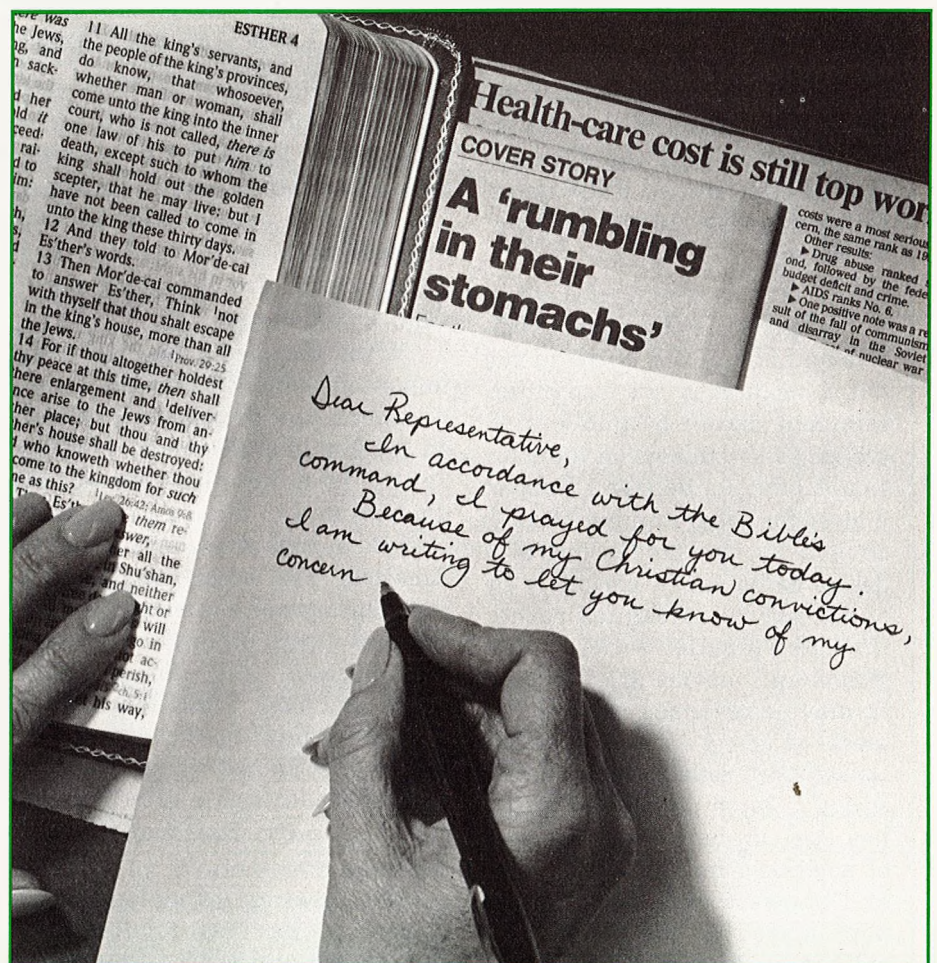 ESTHER 4
11 All the king's servants, and
the people of the king's provinces,
do know, that whosoever,
whether man or woman, shall
come unto the king into the inner
court, who is not called, there is
one law of his to put him to
death, except such to whom the
king shall hold out the golden
scepter, that he may live: but I
have not been called to come in
unto the king these thirty days.
12 And they told to Mor'de-cai
Es'ther's words.
13 Then Mor'de-cai commanded
to answer Es'ther, Think not
with thyself that thou shalt escape
in the king's house, more than all
the Jews.
Prov. 29:25
14 For if thou altogether holdest
thy peace at this time, then shall
there enlargement and deliver-
arise to the Jews from an-
place; but thou and thy
house shall be destroyed:
who knoweth whether thou
come to the kingdom for such
as this?
26:42; Amos 9:8
them re-
all the
Shu'shan,
and neither
or
will
in
ac-
perish,
ch. 5:1
his way,
was
Jews,
and
sack-
her
it
to
Health-care cost is still top
COVER STORY
A 'rumbling
in their
stomachs'
costs were a most serious
cern, the same rank as
Other results:
▶ Drug abuse ranked
ond, followed by the
budget deficit and crime.
▶ AIDS ranks No. 6.
▶ One positive note was a
sult of the fall of communism
and disarray in the Soviet
of nuclear war
Dear Representative,
In accordance with the Bible's
command, I prayed for you today.
Because of my Christian convictions,
I am writing to let you know of my
concern